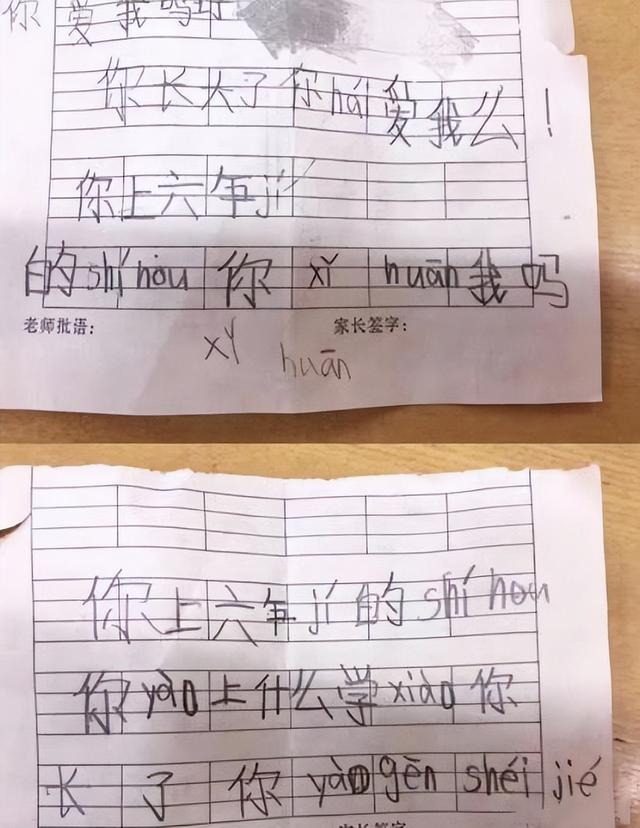 你爱我吗
你长大了你hái爱我么！
你上六年jí
的shí hou 你 xǐ huān 我吗
老师批语： 家长签字：
xǐ huān
你上六年jí的shí hou
你yào上什么学xiào你
长了你yào gēn shéi jié
家长签字